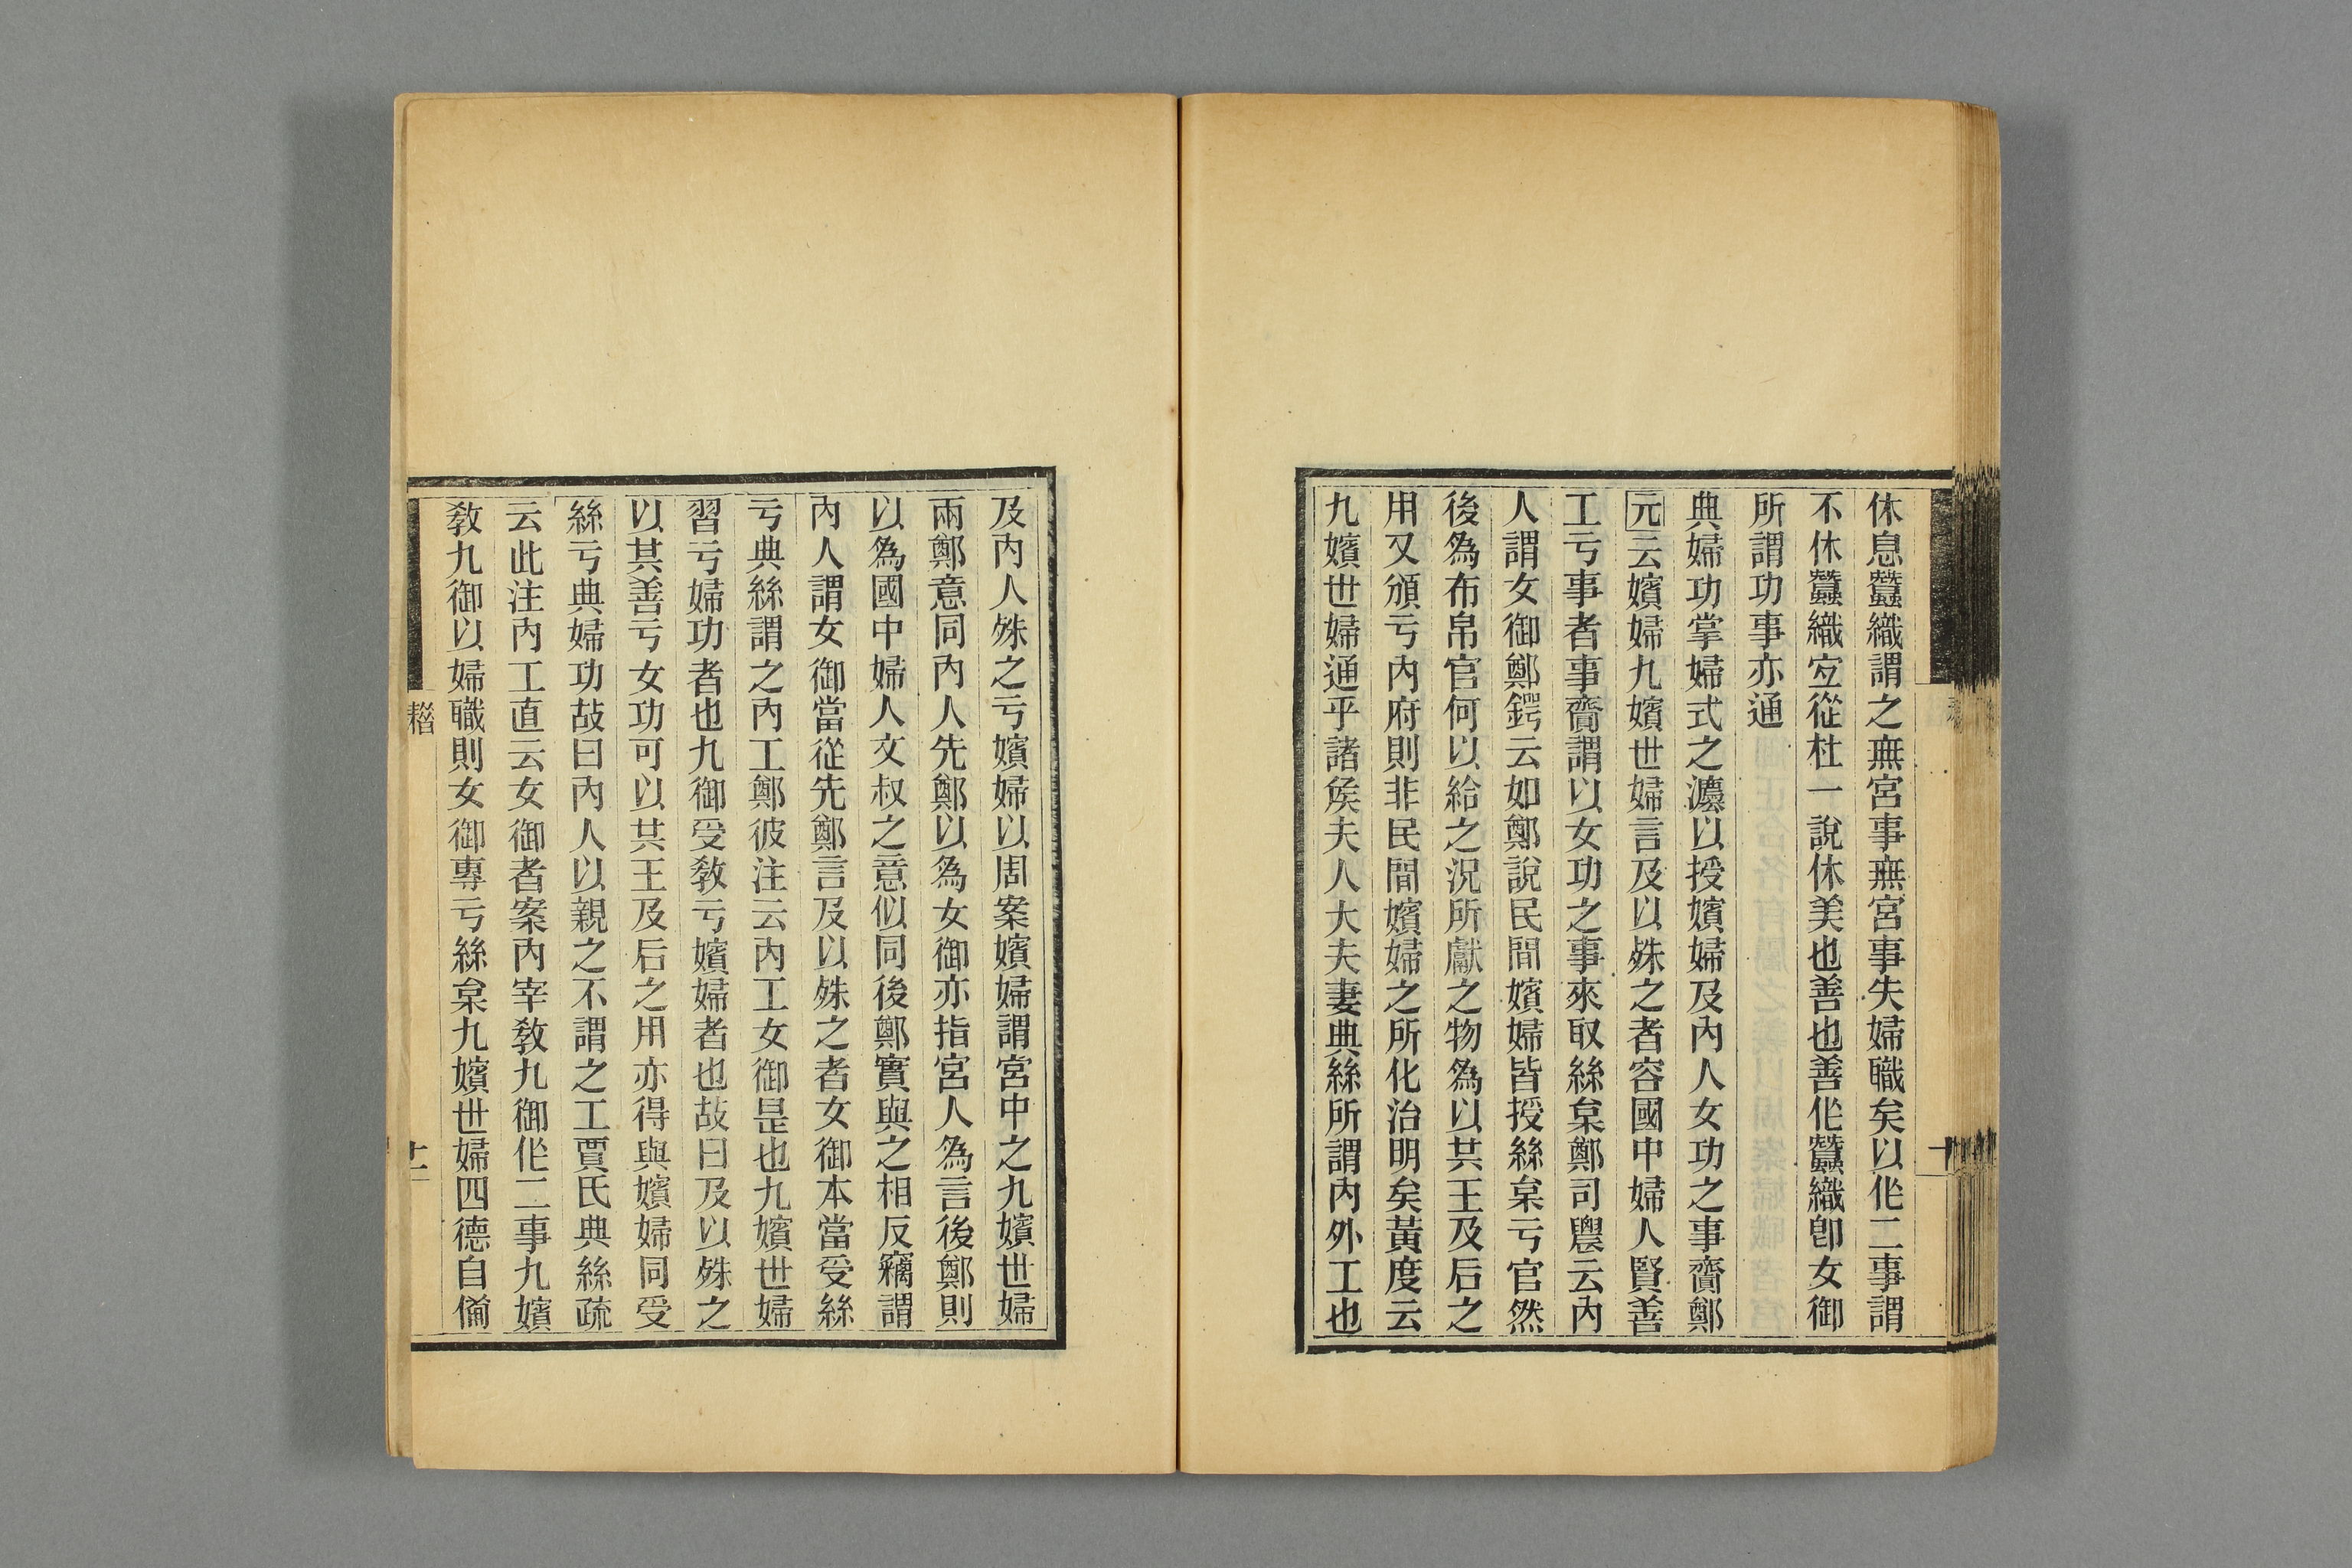 休息蠶織謂之無宮事無宮事失婦職矣以㑅二事謂
不休蠶織宐從杜一說休美也善也善㑅蠶織卽女御
所謂功事亦通
典婦功掌婦式之灋以授嬪婦及內人女功之事齎鄭
元云嬪婦九嬪世婦言及以殊之者容國中婦人賢善
工亏事者事齎謂以女功之事來取絲枲鄭司農云內
人謂女御鄭鍔云如鄭說民間嬪婦皆授絲枲亏官然
後爲布帛官何以給之況所獻之物爲以共王及后之
用又頒亏內府則非民間嬪婦之所化治明矣黃度云
九嬪世婦通乎諸矦夫人大夫妻典絲所謂內外工也
十
及內人殊之亏嬪婦以周案嬪婦謂宮中之九嬪世婦
兩鄭意同內人先鄭以爲女御亦指宮人爲言後鄭則
以爲國中婦人文叔之意似同後鄭實與之相反竊謂
內人謂女御當從先鄭言及以殊之者女御本當受絲
亏典絲謂之內工鄭彼注云內工女御是也九嬪世婦
習亏婦功者也九御受敎亏嬪婦者也故曰及以殊之
以其善亏女功可以共王及后之用亦得與嬪婦同受
絲亏典婦功故曰內人以親之不謂之工賈氏典絲疏
云此注內工直云女御者案內宰敎九御㑅二事九嬪
敎九御以婦職則女御專亏絲枲九嬪世婦四德自僃
十二